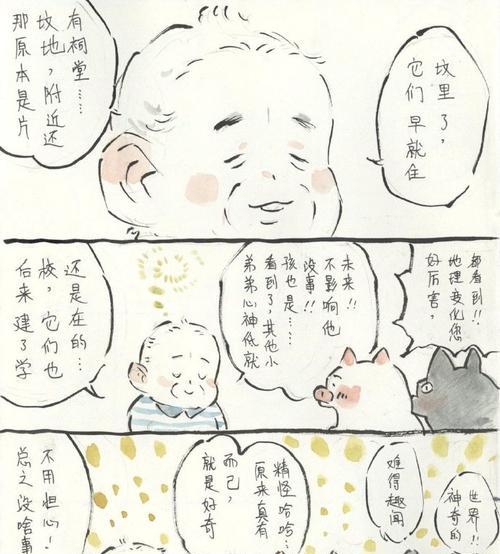 那原本是片
坟地，附近还
有祠堂……
它们早就住
坟里了，
后来建了学
校，它们也
还是在的…
弟弟心神低就
看到了，其他小
孩也是……
没事!!
不影响他
未来!!
好厉害，
地理变化您
都看到!!
总之没啥事
不用担心！
就是好奇
而已，
原来真有
精怪哈哈…
难得趣闻
神奇的
世界!!